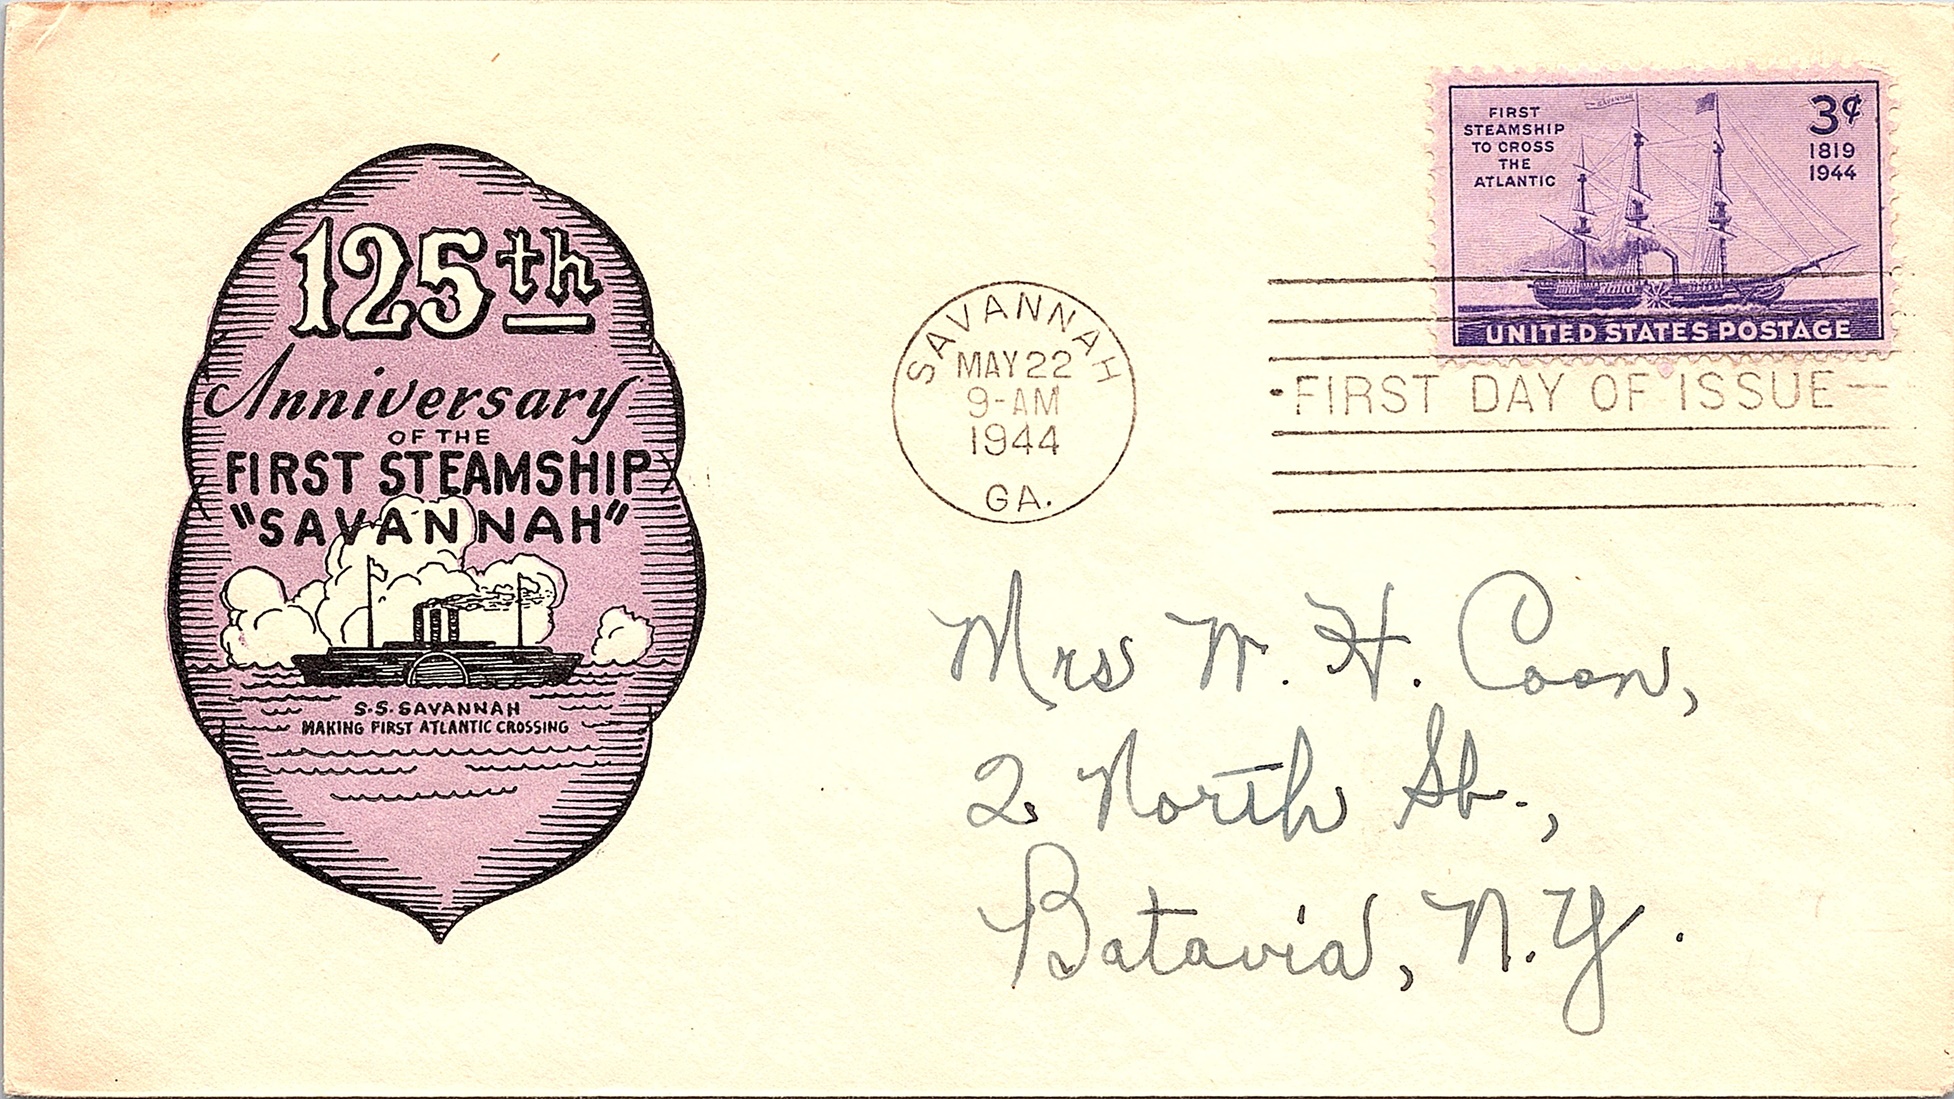 125th
Anniversary
OF THE
FIRST STEAMSHIP
"SAVANNAH"
S.S. SAVANNAH
MAKING FIRST ATLANTIC CROSSING
SAVANNAH
MAY 22
9-AM
1944
GA.
SAVANNAH
FIRST
STEAMSHIP
TO CROSS
THE
ATLANTIC
3¢
1819
1944
UNITED STATES POSTAGE
FIRST DAY OF ISSUE
Mrs W. H. Coon,
2 North St.,
Batavia, N.Y.